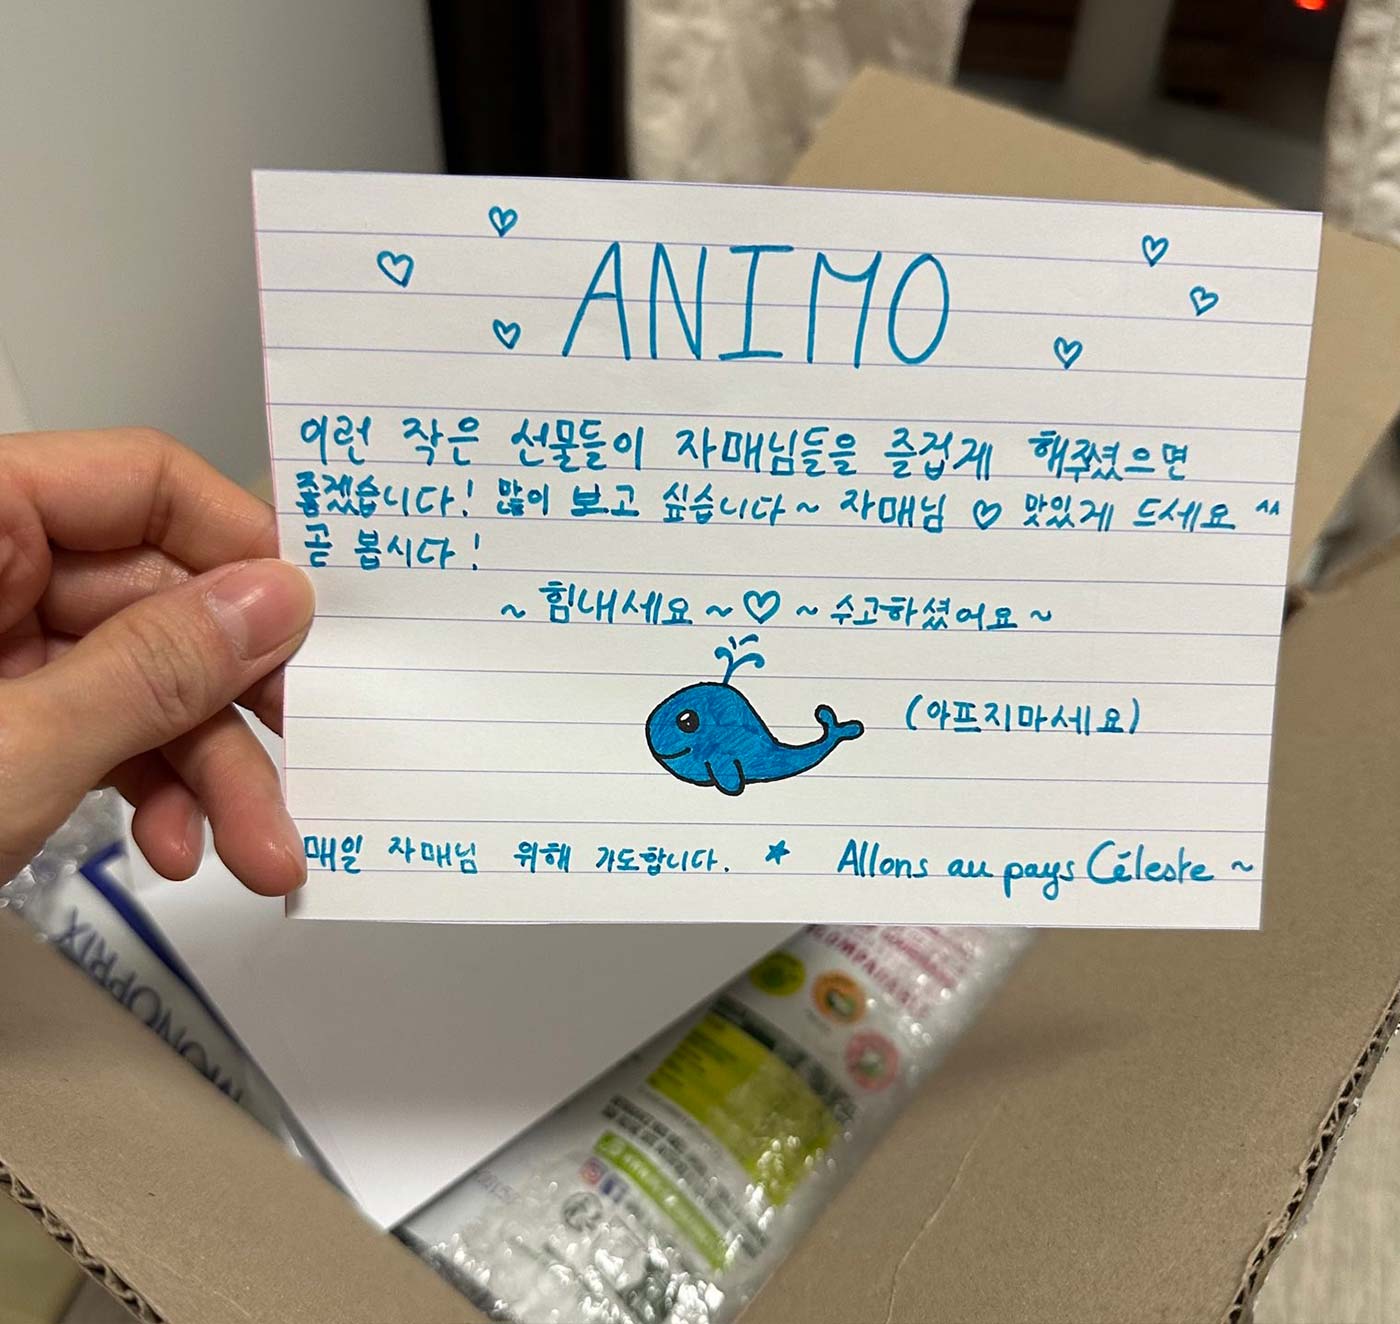 ANIMO
이런 작은 선물들이 자매님들을 즐겁게 해주셨으면
좋겠습니다! 많이 보고 싶습니다~ 자매님 ♡ 맛있게 드세요 ^^
곧 봅시다!
~ 힘내세요 ~ ♡ ~ 수고하셨어요 ~
(아프지마세요)
매일 자매님 위해 기도합니다. ★ Allons au pays Céleste ~
MONOPRIX